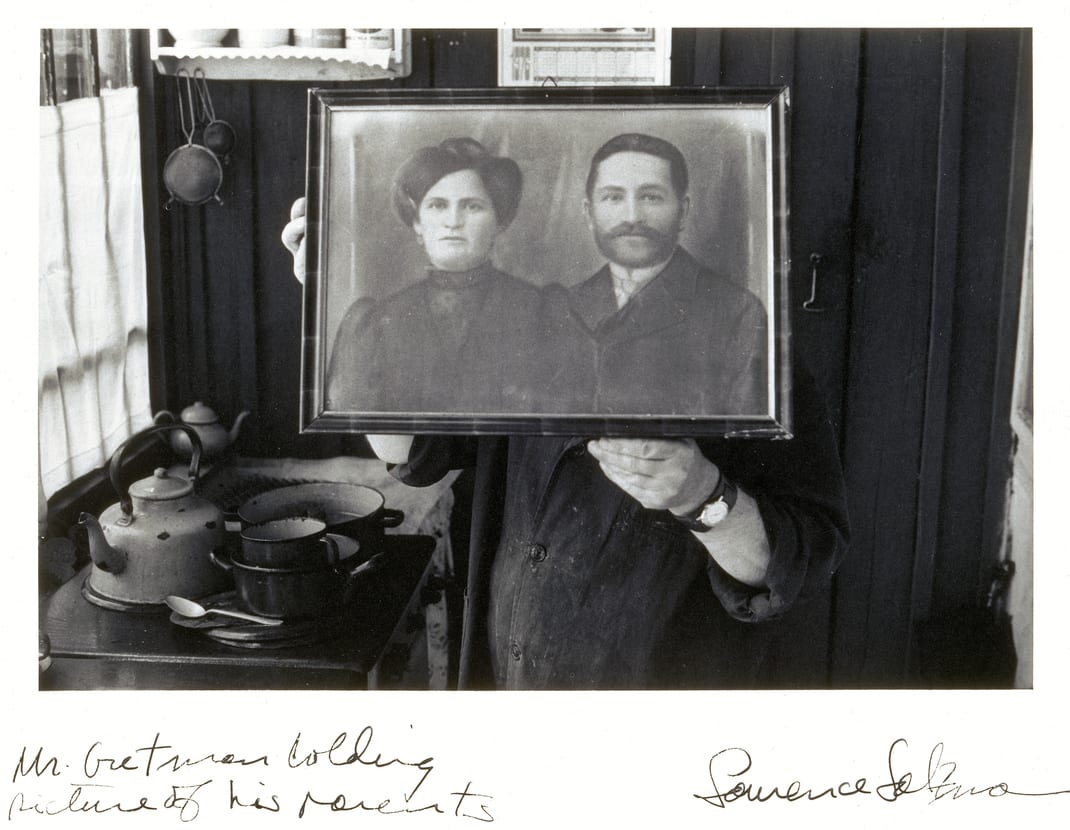 1976
Mr. Gretman holding
picture of his parents
Lawrence Salzmann